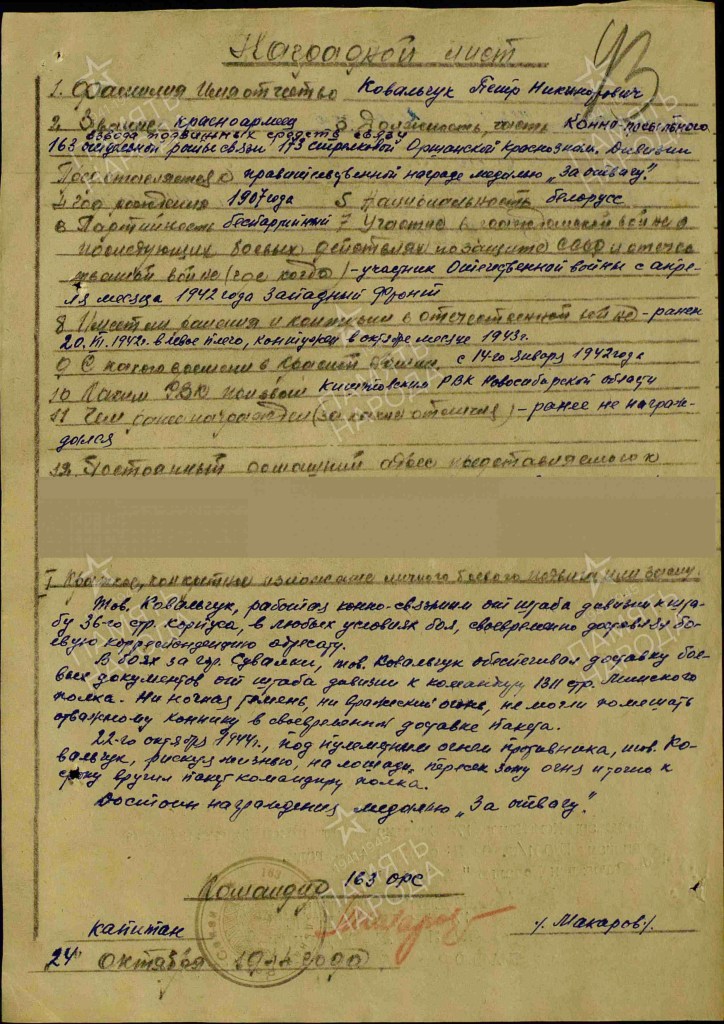 93
Наградной лист
1. Фамилия Имя отчество Ковальчук Петр Никифорович
2. Звание красноармеец 3. Должность, часть Конно-посыльного
взвода подвижных средств связи
163 отдельной роты связи 173 стрелковой Оршанской Краснознам. Дивизии
Представляется к правительственной награде медалью „За отвагу".
4 год рождения 1907 года 5 Национальность белорусс
6 Партийность беспартийный 7 Участие в гражданской войне и
последующих боевых действиях по защите СССР и отечес
твенной войне (где когда) - участник Отечественной войны с апре-
ля месяца 1942 года Западный Фронт
8 Имеет ли ранения и контузии в отечественной войне - ранен
1942г. в левое плечо, контужен в октябре месяце 1943г.
9 С какого времени в Красной Армии с 14-го января 1942 года
10 Каким РВК призван РВК Новосибирской области
11 Чем ранее награжден (за какие отличия) - ранее не награж-
дался
12 Постоянный домашний адрес представляемого к
I. Краткое, конкретное изложение личного боевого подвига или заслуг
Тов. Ковальчук, работая конно-связным от штаба дивизии к шта-
бу 36-го стр. корпуса, в любых условиях боя, своевременно доставлял бо-
евую корреспонденцию адресату.
В боях за гор. Сувалки, тов. Ковальчук обеспечивал доставку бое-
вых документов от штаба дивизии к командиру 1311 стр. Минского
полка. Ни ночная темень, ни вражеский огонь, не могли помешать
отважному коннику в своевременной доставке пакета.
22-го октября 1944г., под пулеметным огнем противника, тов. Ко-
вальчук, рискуя жизнью, на лошади, пересек зону огня и точно к
сроку вручил пакет командиру полка.
Достоин награждения медалью „За отвагу".
Командир 163 орс
капитан Макаров /. Макаров/.
24 октября 1944 года.
ПАМЯТЬ НАРОДА